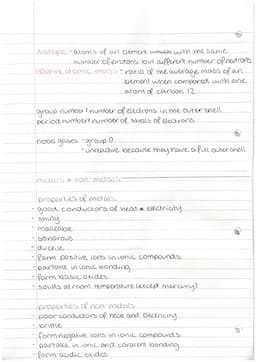 isotope - atoms of an element which with the same
number of protons but different number of neutrons
relative atomic mass - ratio of the average mass of an
element when compared with one
atom of carbon 12
group number: number of electrons in the outer shell
period number: number of shells of electrons
noble gases - group 0
- unreactive because they have a full outer shell
metals + non-metals
properties of metals
- good conductors of heat + electricity
- shiny
- malleable
- sonorous
- ductile
- form positive ions in ionic compounds
- partake in ionic bonding
- form basic oxides
- solids at room temperature (except mercury)
properties of non-metals
- poor conductors of heat and electricity
- brittle
- form negative ions in ionic compounds
- partake in ionic and covalent bonding
- form acidic oxides